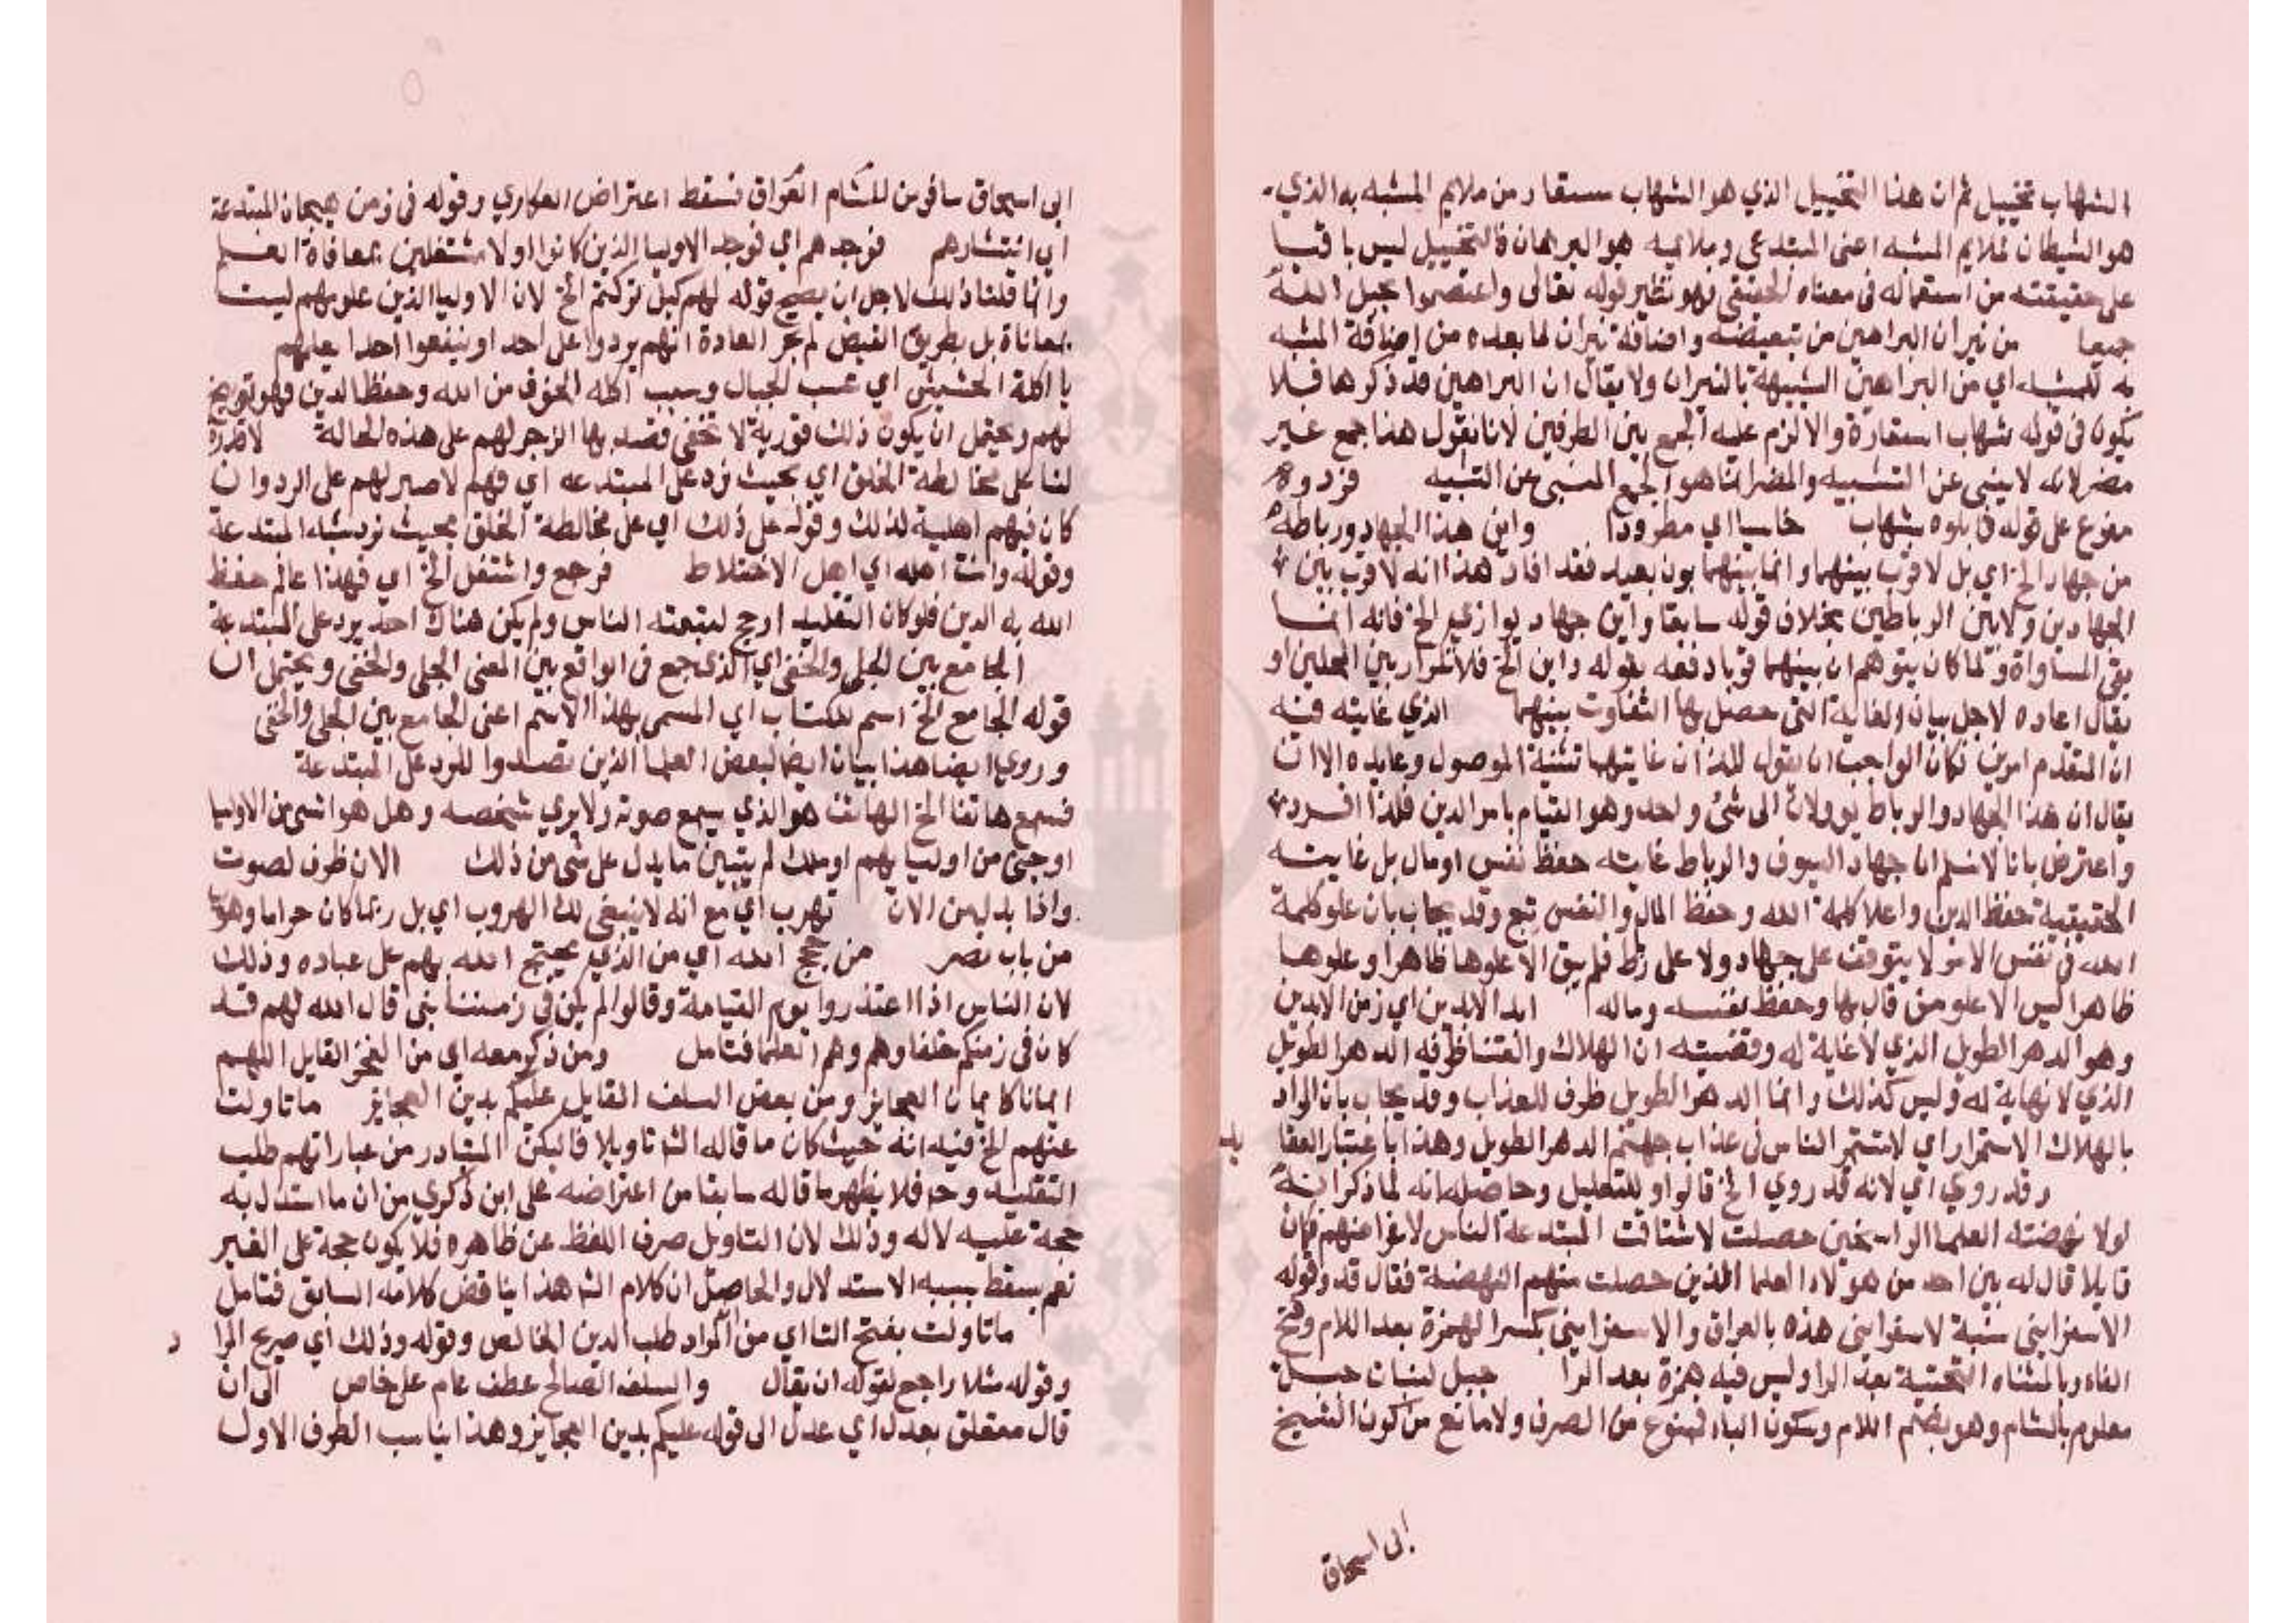 الشهاب تخييل ثم ان هذا التخييل الذي هو الشهاب مستعار من ملايم المشبه به الذي
هو الشيطان لملايم المشبه اعني المبتدعي وملايمه هو البرهان فالتخييل ليس باقيا
على حقيقته من استعماله في معناه الحقيقي فهو نظير قوله تعالى واعتصموا بحبل الله
جميعا من نيران البراهين من تبعيضية واضافة نيران لما بعده من اضافة المشبه
به للمشبه اي من البراهين الشبيهة بالنيران ولا يقال ان البراهين قد ذكرها فلا
يكون في قوله شهاب استعارة والا لزم عليه الجمع بين الطرفين لانا نقول هذا جمع غير
مضر لانه لا ينبي عن التشبيه والمضر انما هو الجمع المنبي عن التشبيه فردوه
مفرع على قوله قابلوه بشهاب خاسيا اي مطرودا واين هذا الجهاد ورباطه
من جهاد الخ اي بل لا قرب بينهما وانما بينهما بون بعيد فقد افاد هذا انه لا قرب بين
الجهادين ولا بين الرباطين بخلاف قوله سابقا واين جهاد يوازي الخ فانه انما
نفى المساواة ولما كان يتوهم ان بينهما قربا دفعه بقوله واين الخ فلا تكرار بين المحلين او
يقال اعاده لاجل بيان الغاية التي حصل بها التفاوت بينهما الذي غايته فيه
ان المتقدم امرين فكان الواجب ان يقول اللذان غايتهما تثنية الموصول وعايده الا ان
يقال ان هذا الجهاد والرباط يولان الى شئ واحد وهو القيام بامر الدين فلذا افرد
واعترض بانا لا نسلم ان جهاد السيوف والرباط غايته حفظ نفس او مال بل غايته
الحقيقية حفظ الدين واعلا كلمة الله وحفظ المال والنفس تبع وقد يجاب بان علو كلمة
الله في نفس الامر لا يتوقف على جهاد ولا على ربط فلم يبق الا علوها ظاهرا وعلوها
ظاهرا ليس الا علو من قال بها وحفظ نفسه وماله ابد الابدين اي زمن الابدين
وهو الدهر الطويل الذي لا غاية له وقضيته ان الهلاك والفتنا ظرفه الدهر الطويل
الذي لا نهاية له وليس كذلك وانما الدهر الطويل ظرف للعذاب وقد يجاب بان المراد
بالهلاك الاستمرار اي لاستمر الناس في عذاب جهنم الدهر الطويل وهذا باعتبار العقا
يد
وقد روي اي لانه قد روي الخ فالواو للتعليل وحاصله انه لما ذكر انه
لولا نهضته العلما الراسخين حصلت لاشتاقت المبتدعة الناس لاغراضهم فكان
قايلا قال له بين احد من هولاء العلما الذين حصلت منهم النهضة فقال قد وقوله
الاسفرايني نسبة لاسفراين هذه بالعراق والاسفرايني بكسر الهمزة بعد اللام وفتح
الفاء وبالمثناه التحتية بعد الرا وليس فيه همزة بعد الرا جبل لبنان جبل
معلوم بالشام وهو بضم اللام وسكون الباء ممنوع من الصرف ولا مانع من كون الشيخ
ابى اسحاق
ابى اسحاق سافر من للشام العراق فسقط اعتراض العكاري وقوله في زمن هيجان المبتدعة
اي انتشارهم فوجدهم اي فوجد الاوليا الذين كانوا اولا مشتغلين بمعاناة العلم
وانما قلنا ذلك لاجل ان يصح قوله لهم كيف تركتم الخ لان الاوليا الذين علومهم ليست
بمعاناة بل بطريق الفيض لم تجر العادة انهم يردوا على احد او ينفعوا احدا بعلمهم
يا اكلة الحشيش اي عشب الجبال وسبب اكله الخوف من الله وحفظ الدين فهو توبيخ
لهم ويحتمل ان يكون ذلك تورية لا تخفى قصد بها الزجر لهم على هذه الحالة لا قدرة
لنا على مخالطة الخلق اي بحيث نرد على المبتدعه اي فهم لا صبر لهم على الرد وان
كان فيهم اهلية لذلك وقوله على ذلك اي على مخالطة الخلق بحيث نرد شبه المبتدعة
وقوله وانت اهله اي اهل الاختلاط فرجع واشتغل الخ اي فهذا عالم حفظ
الله به الدين فلو كان التقليد ارجح لتبعته الناس ولم يكن هناك احد يرد على المبتدعة
الجامع بين الجلي والخفي اي الذي جمع في الواقع بين المعنى الجلي والخفي ويحتمل ان
قوله الجامع الخ اسم للكتاب اي المسمى بهذا الاسم اعني الجامع بين الجلي والخفي
وروي ايضا هذا بيان ايضا لبعض العلما الذين تصدوا للرد على المبتدعة
فسمع هاتفا الخ الهاتف هو الذي يسمع صوته ولا يري شخصه وهل هو انسى من الاوليا
او جنى من اوليايهم او ملك لم يتبين ما يدل على شى من ذلك الان ظرف لصوت
واذا بدل من الان تهرب اي مع انه لا ينبغى لك الهروب اي بل ربما كان حراما وهو
من باب نصر من حجج الله اي من الذي يحتج الله بهم على عباده وذلك
لان الناس اذا اعتذروا يوم القيامة وقالوا لم يكن في زمننا نبي قال الله لهم قد
كان في زمنكم خلفاوهم وهم العلما فتامل ومن ذكر معه اي من الفخر القايل اللهم
ايمانا كايمان العجايز ومن بعض السلف القايل عليكم بدين العجايز ما تاولت
عنهم الخ فيه انه حيث كان ما قاله الشا تاويلا فاليكن المتبادر من عباراتهم طلب
التقليد وح فلا يظهر ما قاله سابقا من اعتراضه على ابن ذكري من ان ما استدل به
حجة عليه لا له وذلك لان التاويل صرف اللفظ عن ظاهره فلا يكون حجة على الغير
نعم يسقط بسببه الاستدلال والحاصل ان كلام الشا هذا يناقض كلامه السابق فتامل
ما تاولت بفتح التا اي من المراد طلب الدين الخالص وقوله وذلك اي صريح المرا
د
وقوله مثلا راجع لقوله ان يقال والسلف الصالح عطف عام على خاص الى ان
قال متعلق بعدل اي عدل الى قوله عليكم بدين العجايز وهذا يناسب الطرف الاول